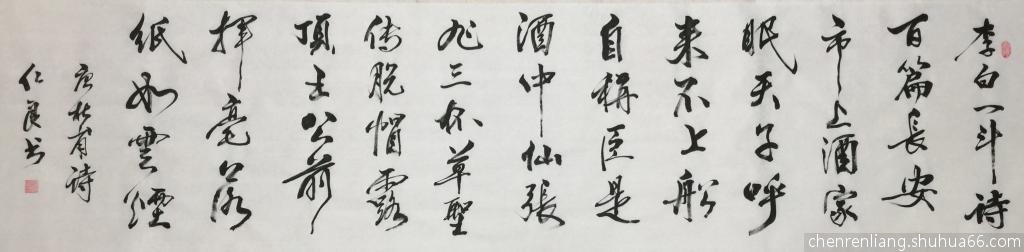 李白一斗诗
百篇長安
市上酒家
眠天子呼
来不上船
自稱臣是
酒中仙張
旭三杯草聖
傳脱帽露
頂王公前
揮毫落
紙如雲煙
唐杜甫诗
仁良书
chenrenliang.shuhua66.com